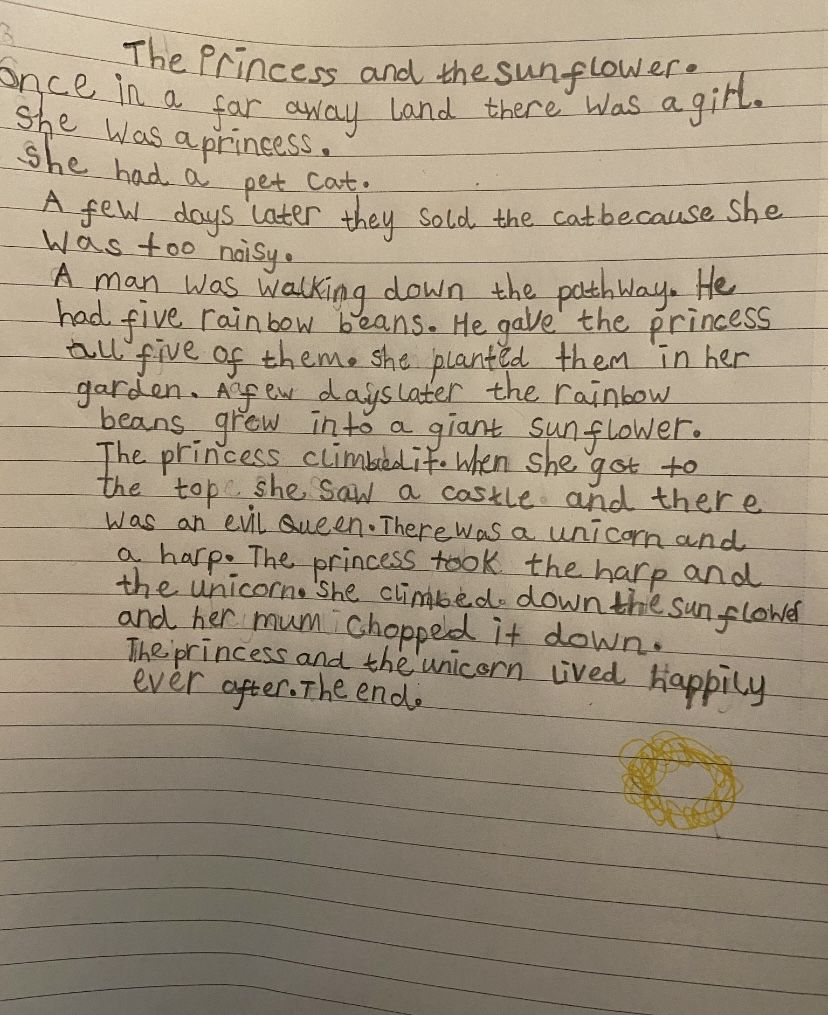 The Princess and the sunflower.
Once in a far away land there was a girl.
She was a princess.
She had a pet cat.
A few days later they sold the cat because she
was too noisy.
A man was walking down the pathway. He
had five rainbow beans. He gave the princess
all five of them. She planted them in her
garden. A few days later the rainbow
beans grew into a giant sunflower.
The princess climbed it. When she got to
the top she saw a castle and there
was an evil Queen. There was a unicorn and
a harp. The princess took the harp and
the unicorn. She climbed. down the sunflower
and her mum chopped it down.
The princess and the unicorn lived happily
ever after. The end.